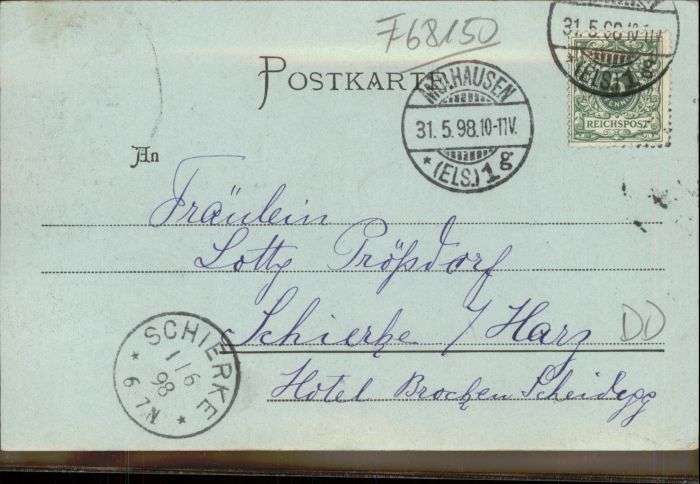 F68150
31.5.98.10-11V.
(ELS.) 1 g
REICHSPOST
POSTKARTE
MÜLHAUSEN
31.5.98.10-11V.
* (ELS.) 1 g
An
Fräulein
Lotty Prößdorf
Schierke / Harz
DD
Hôtel Brocken Scheidegg
SCHIERKE
1 / 6
98
* 6-7N *